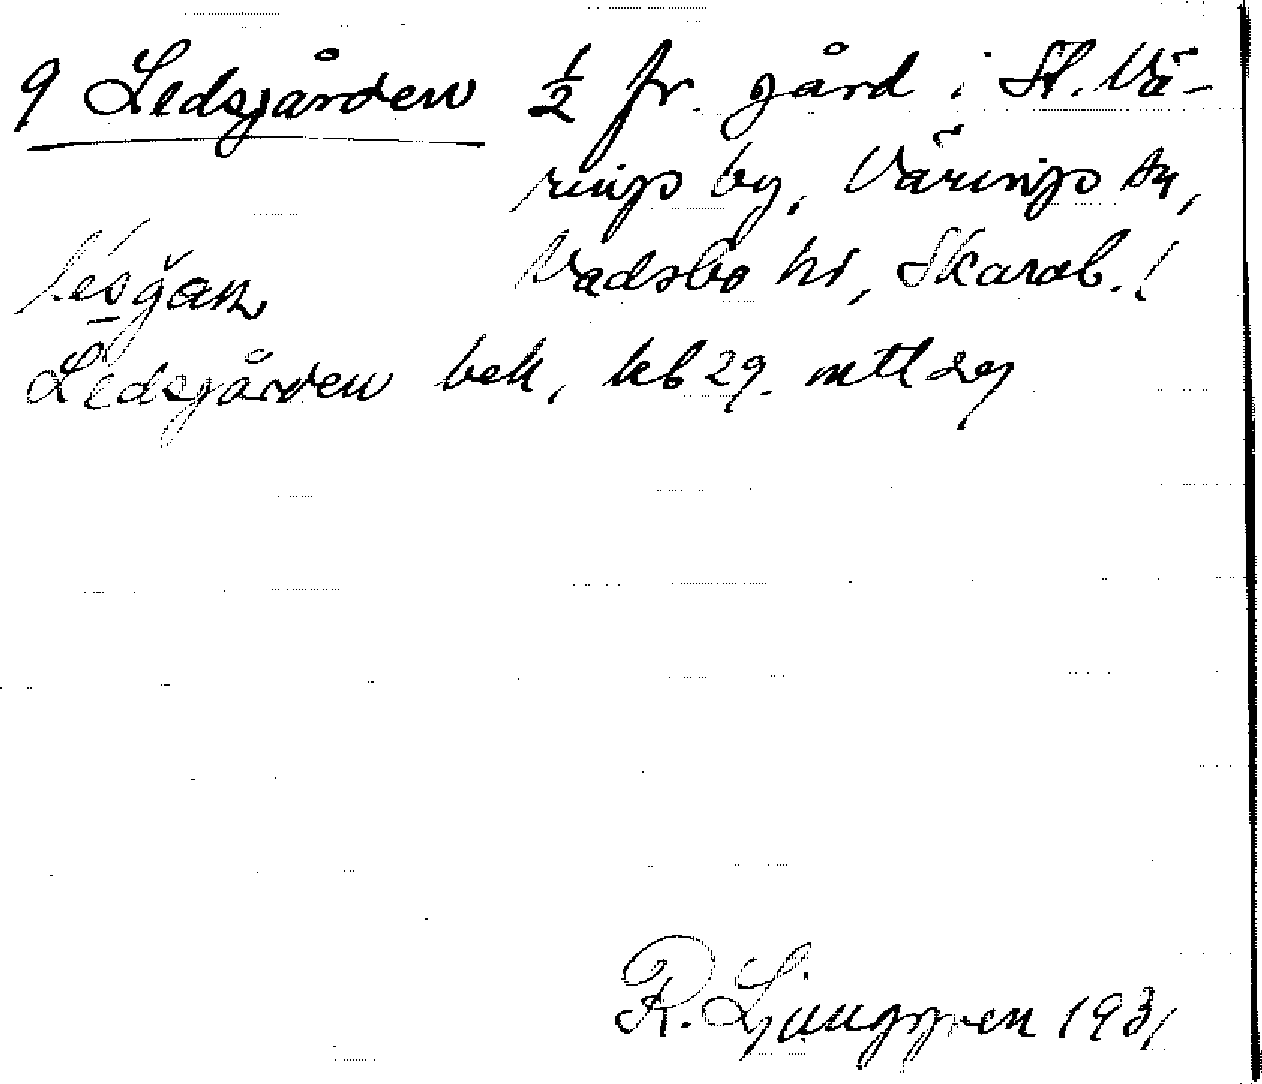 9 Ledsgården ½ fr. gård i St. Vä-
rings by, Värings sn,
Vadsbo hd, Skarab. l
Ledsgården bek, kb 29. mtl
R. Ljunggren 1931